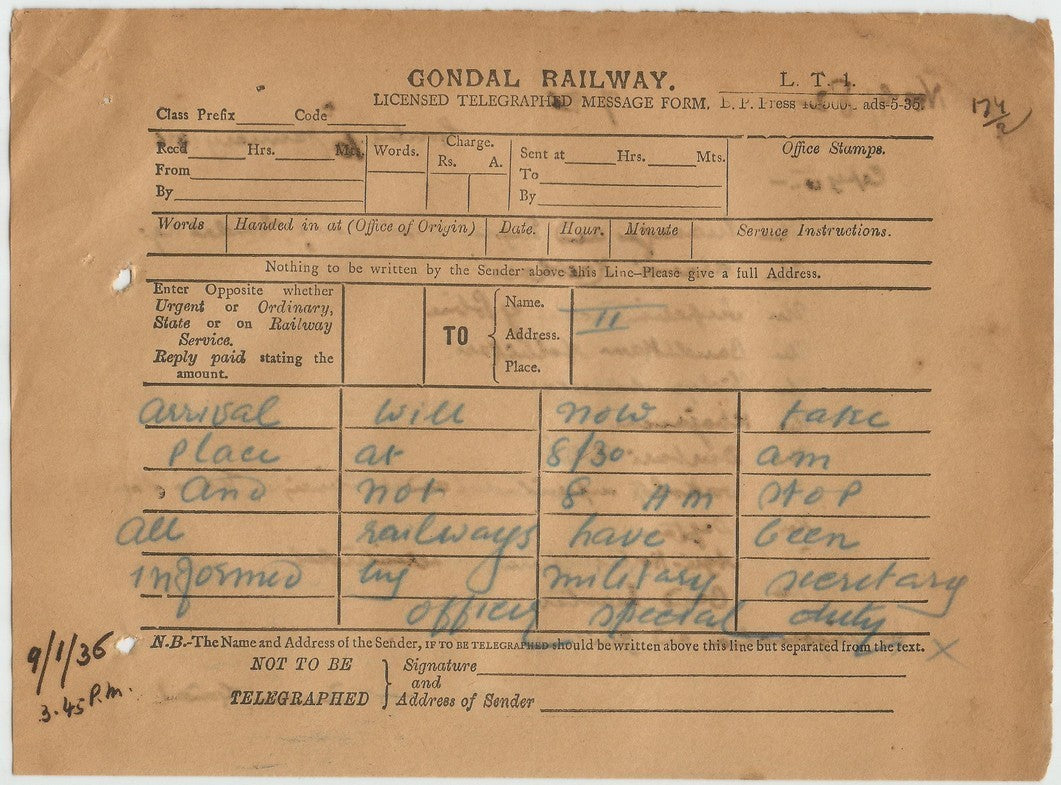 GONDAL RAILWAY. L. T. 1.
LICENSED TELEGRAPHED MESSAGE FORM. L. P. Press ads-5-35.
174/2
Class Prefix Code
Recd Hrs. Mts. Words. Charge. Sent at Hrs. Mts. Office Stamps.
From Rs. A. To
By By
Words Handed in at (Office of Origin) Date. Hour. Minute Service Instructions.
Nothing to be written by the Sender above this Line-Please give a full Address.
Enter Opposite whether
Urgent or Ordinary,
State or on Railway
Service.
Reply paid stating the
amount.
TO
Name.
Address.
Place.
II
arrival will now take
place at 8/30 am
and not 8 AM stop
all railways have been
informed by military secretary
officer special duty
x
N.B.-The Name and Address of the Sender, IF TO BE TELEGRAPHED should be written above this line but separated from the text.
NOT TO BE
TELEGRAPHED
Signature
and
Address of Sender
9/1/36
3.45 P.m.